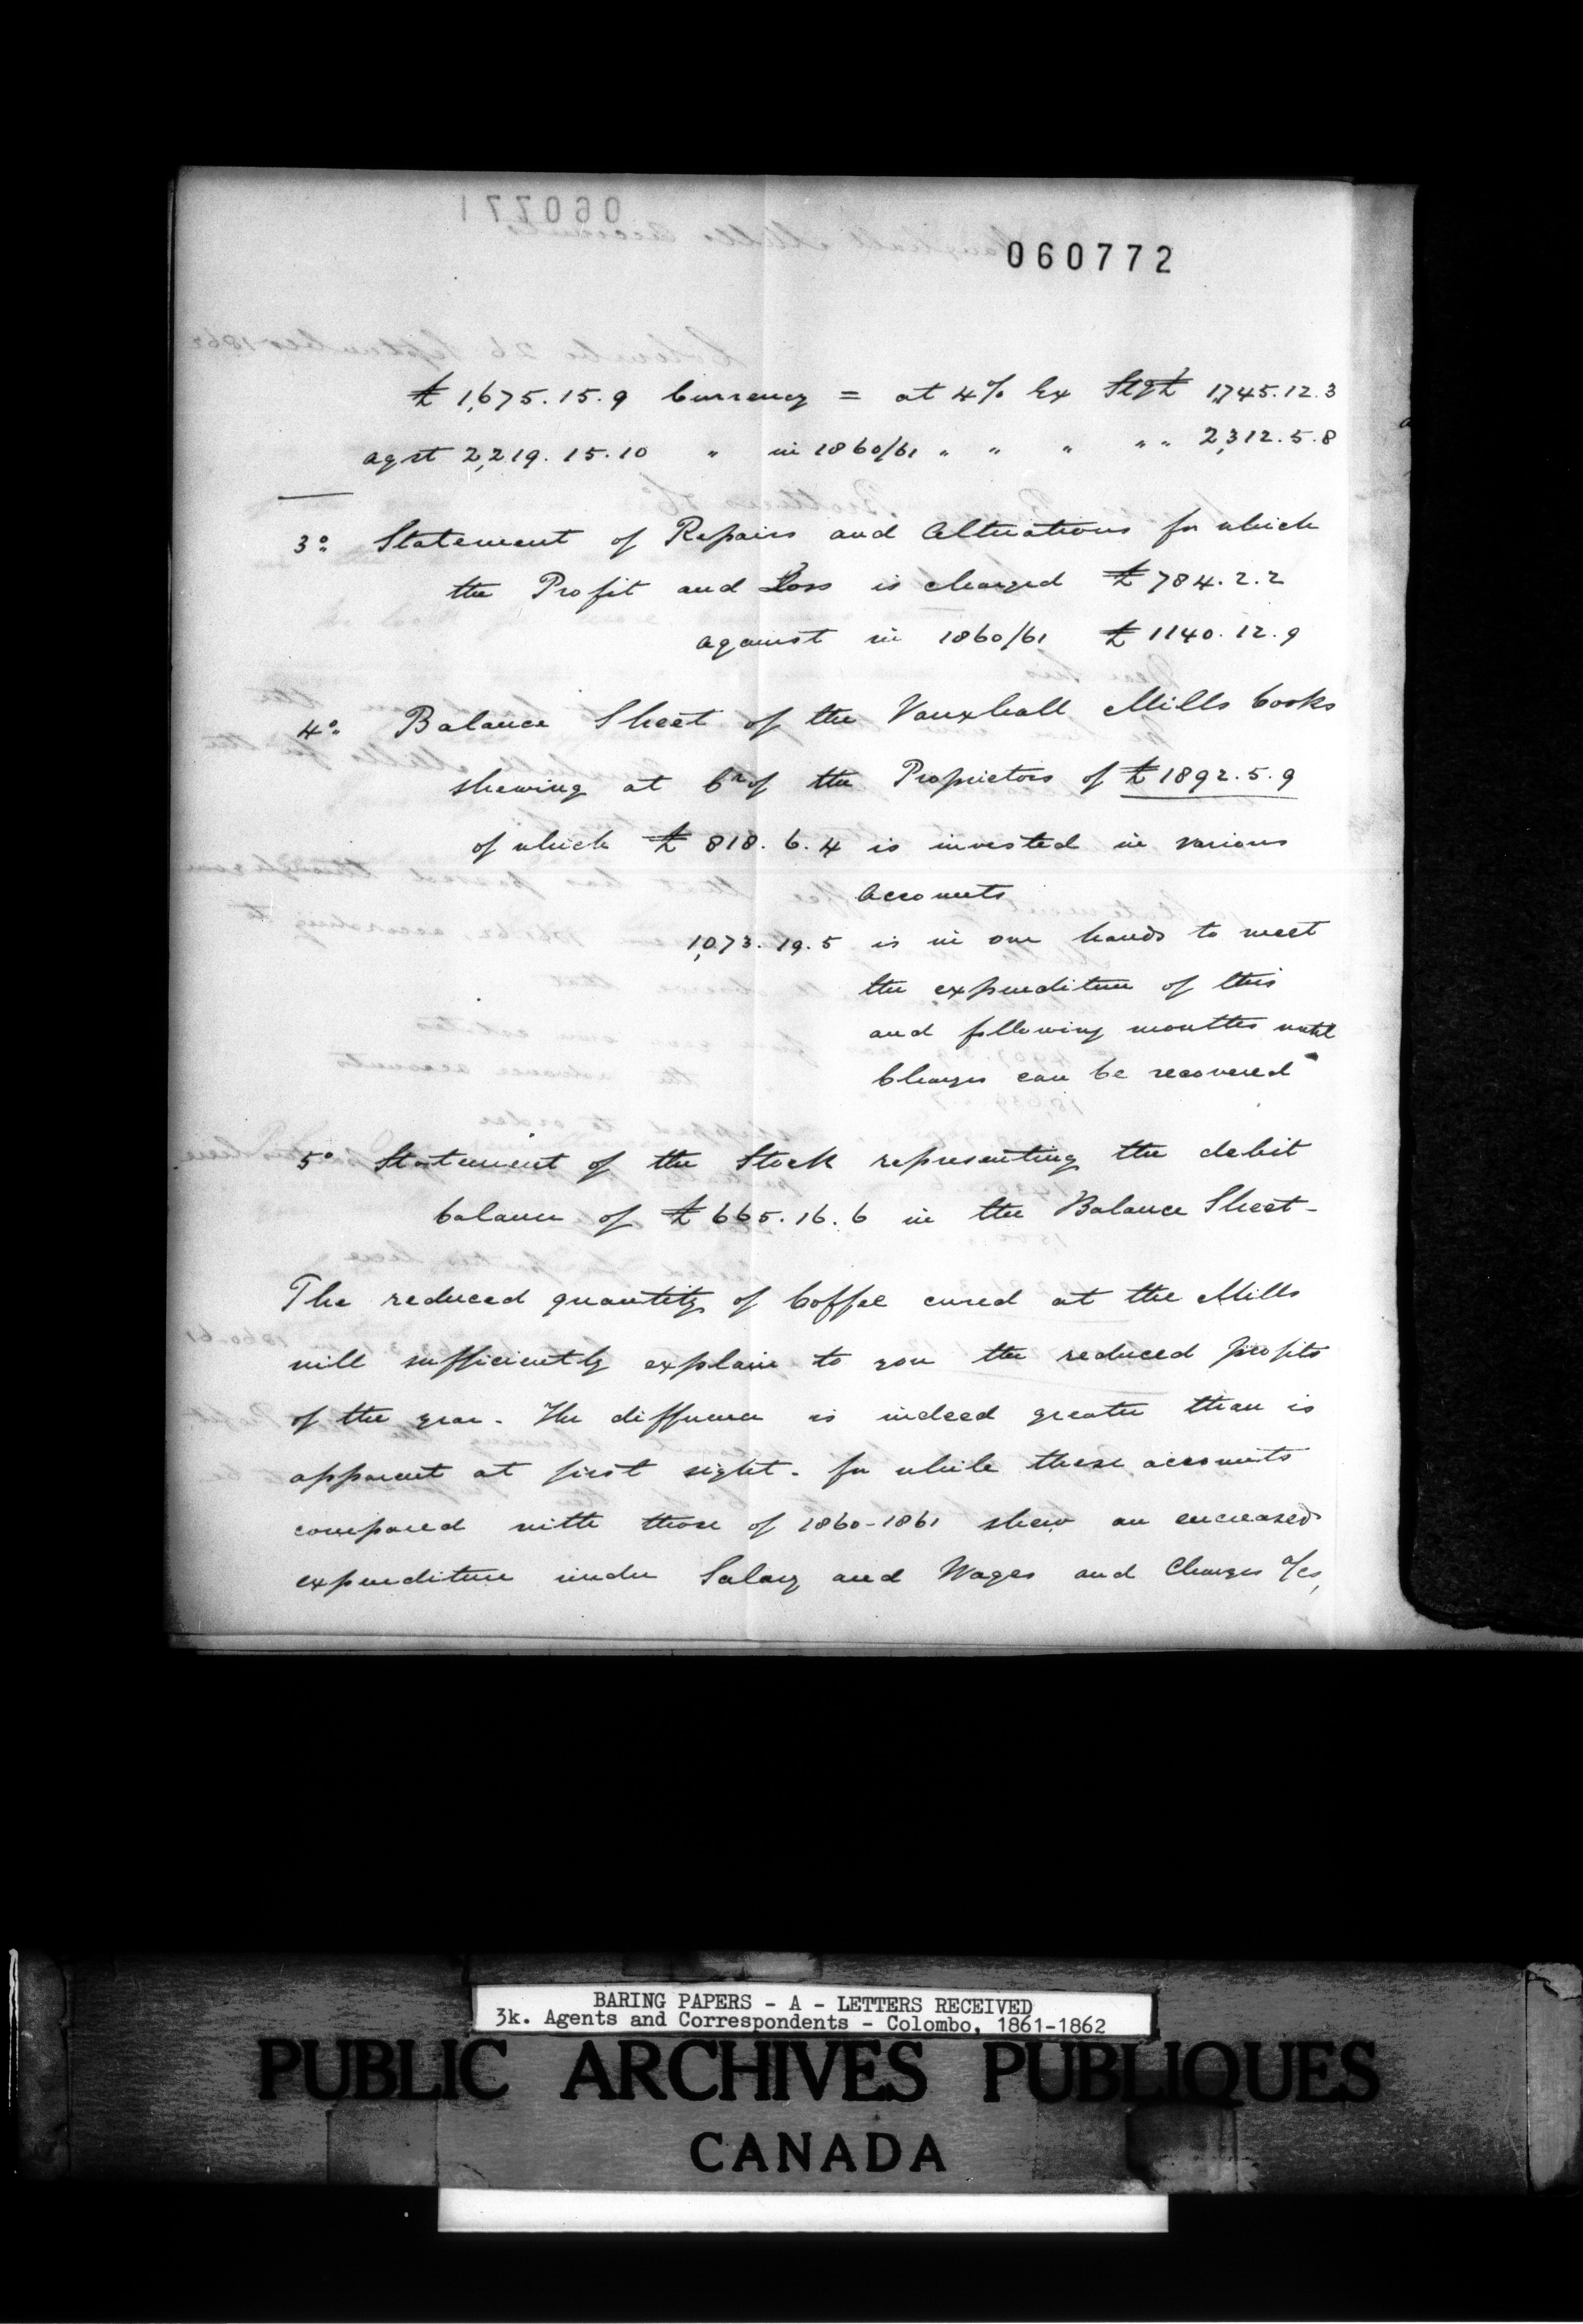 060771
060772
£ 1,675.15.9 Currency = at 4% Ex Stg £ 1,745.12.3
agst 2,219.15.10 " in 1860/61 " " " " " 2,312.5.8
3º Statement of Repairs and Alterations for which
the Profit and Loss is charged £ 784.2.2
against in 1860/61 £ 1140.12.9
4º Balance Sheet of the Vauxhall Mills books
shewing at Cr of the Proprietors of £ 1892.5.9
of which £ 818.6.4 is invested in various
accounts
1,073.19.5 is in our hands to meet
the expenditure of this
and following months until
Charges can be recovered
5º Statement of the Stock representing the debit
balance of £ 665.16.6 in the Balance Sheet -
The reduced quantity of Coffee cured at the Mills
will sufficiently explain to you the reduced profits
of the year - The difference is indeed greater than is
apparent at first sight - for while these accounts
compared with those of 1860-1861 shew an encreased
expenditure under Salary and Wages and Charges a/cs,
BARING PAPERS - A - LETTERS RECEIVED
3k. Agents and Correspondents - Colombo, 1861-1862
PUBLIC ARCHIVES PUBLIQUES
CANADA